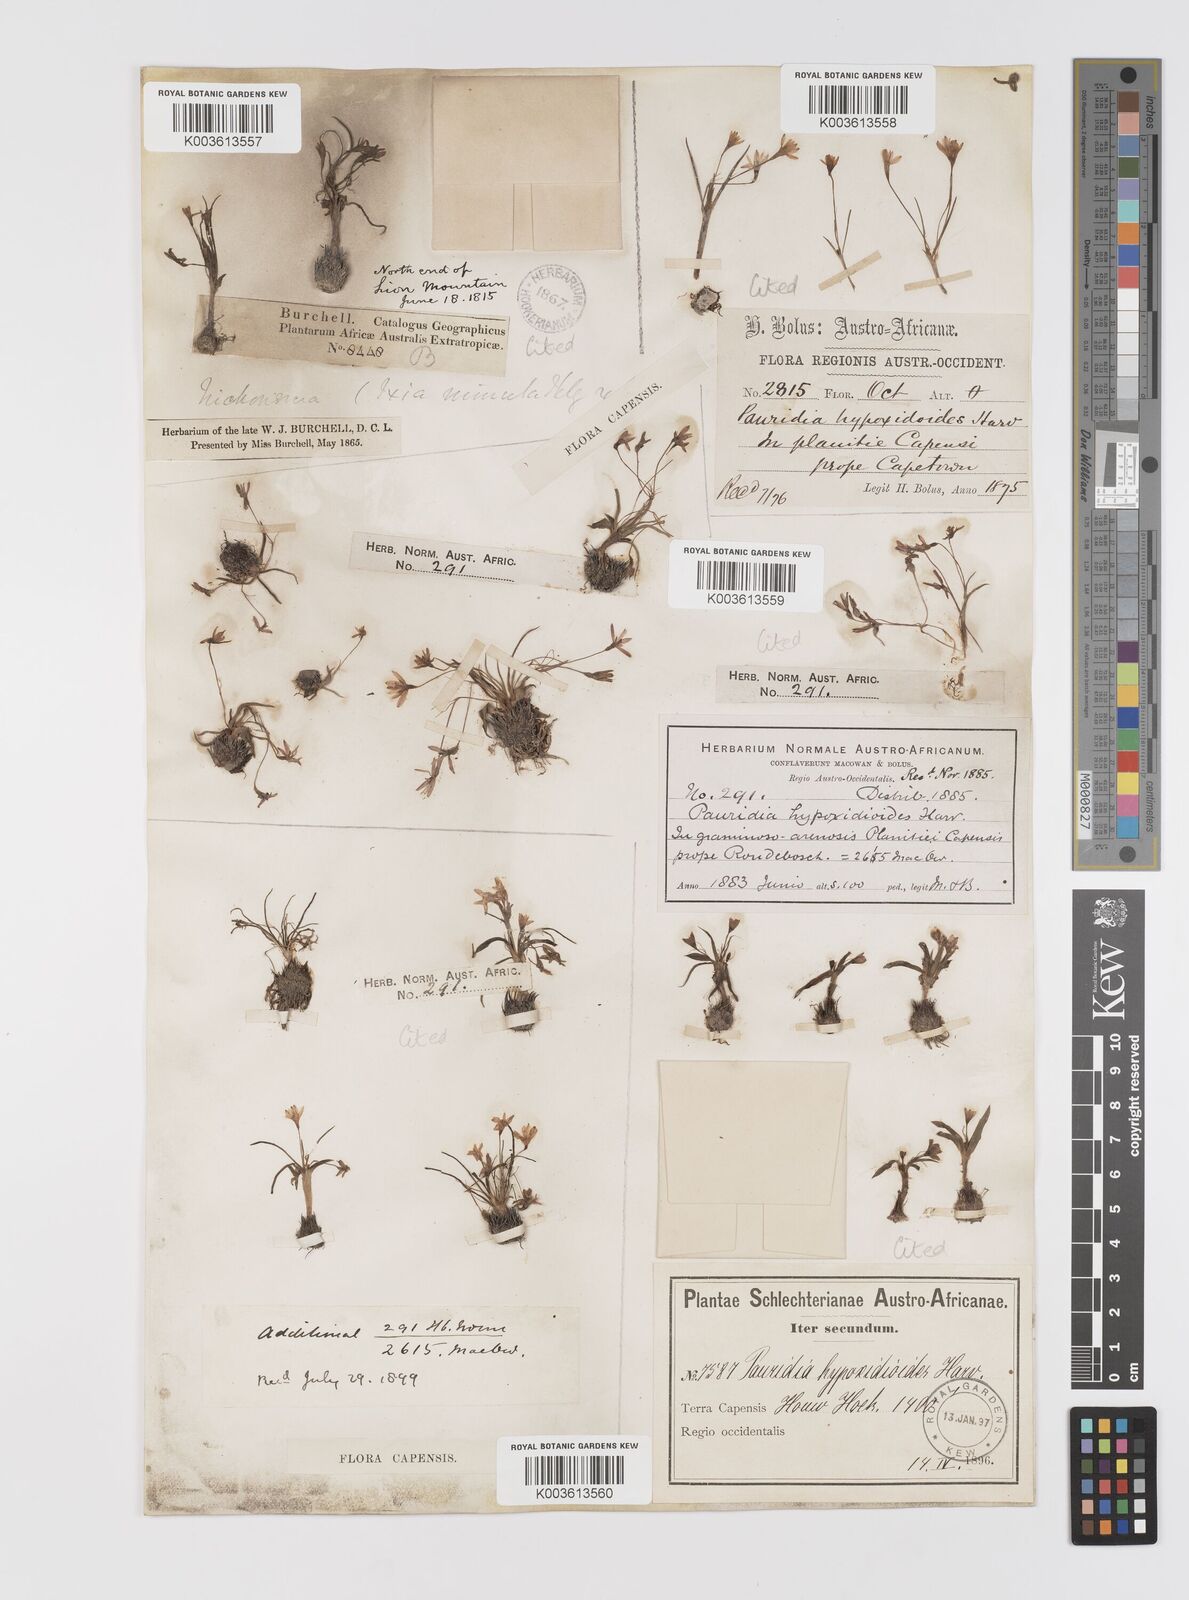 ROYAL BOTANIC GARDENS KEW
K003613557
North end of
Lion Mountain
June 18. 1815
HERBARIUM HOOKERIANUM
1867
Cited
Burchell. Catalogus Geographicus
Plantarum Africæ Australis Extratropicæ.
No. 8440
B
(Ixia minuta
Herbarium of the late W. J. BURCHELL, D. C. L.
Presented by Miss Burchell, May 1865.
FLORA CAPENSIS.
ROYAL BOTANIC GARDENS KEW
K003613558
Cited
H. Bolus: Austro-Africanæ.
FLORA REGIONIS AUSTR.-OCCIDENT.
No. 2815 FLOR. Oct ALT.
Pauridia hypoxidoides Harv
In planitie Capensi
prope Capetown
Recd 7/76
Legit H. Bolus, Anno 1875
HERB. NORM. AUST. AFRIC.
No. 291.
ROYAL BOTANIC GARDENS KEW
K003613559
Cited
HERB. NORM. AUST. AFRIC.
No. 291.
HERBARIUM NORMALE AUSTRO-AFRICANUM.
CONFLAVERUNT MACOWAN & BOLUS.
Regio Austro-Occidentalis. Recd. Nov. 1885.
No. 291. Distrib. 1885.
Pauridia hypoxidioides Harv.
In graminoso-arenosis Planitiei Capensis
prope Rondebosch. = 2615 MacOw.
Anno 1883 Junio alt. s. 100 ped., legit M. & B.
HERB. NORM. AUST. AFRIC.
No. 291.
Cited
Cited
Additional 291 Hb. Norm
2615. MacOw.
Recd July 29. 1899
FLORA CAPENSIS.
ROYAL BOTANIC GARDENS KEW
K003613560
Plantae Schlechterianae Austro-Africanae.
Iter secundum.
No. 7587 Pauridia hypoxidioides Harv.
Terra Capensis Houw Hoek. 1400
Regio occidentalis
14. IV. 1896.
ROYAL GARDENS
13.JAN.97
KEW
inches
cm
Density
Don Williams
M000827
Royal Botanic Gardens Kew
Kew
0 1 2 3 4 5 6 7 8 9 10
copyright reserved